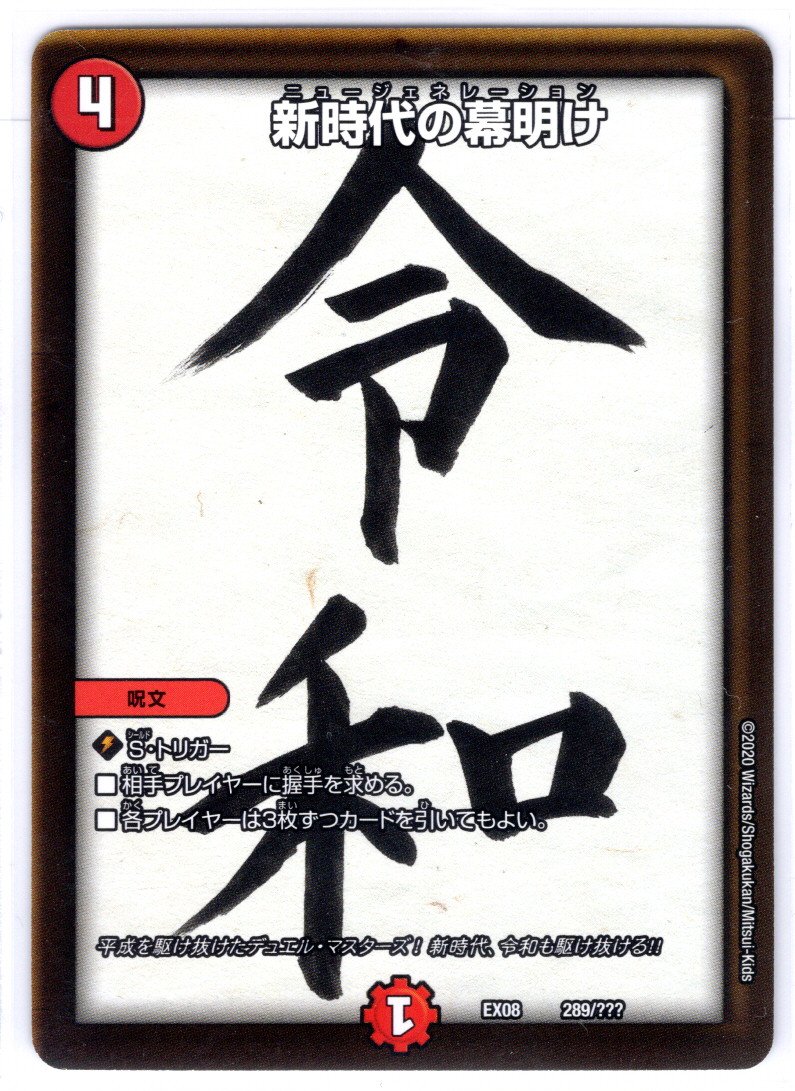 4
ニュージェネレーション
新時代の幕明け
令
和
呪文
シールド
S・トリガー
あいて あくしゅ もと
■相手プレイヤーに握手を求める。
かく まい ひ
■各プレイヤーは3枚ずつカードを引いてもよい。
平成を駆け抜けたデュエル・マスターズ! 新時代、令和も駆け抜ける!!
1
EX08 289/???
©2020 Wizards/Shogakukan/Mitsui-Kids